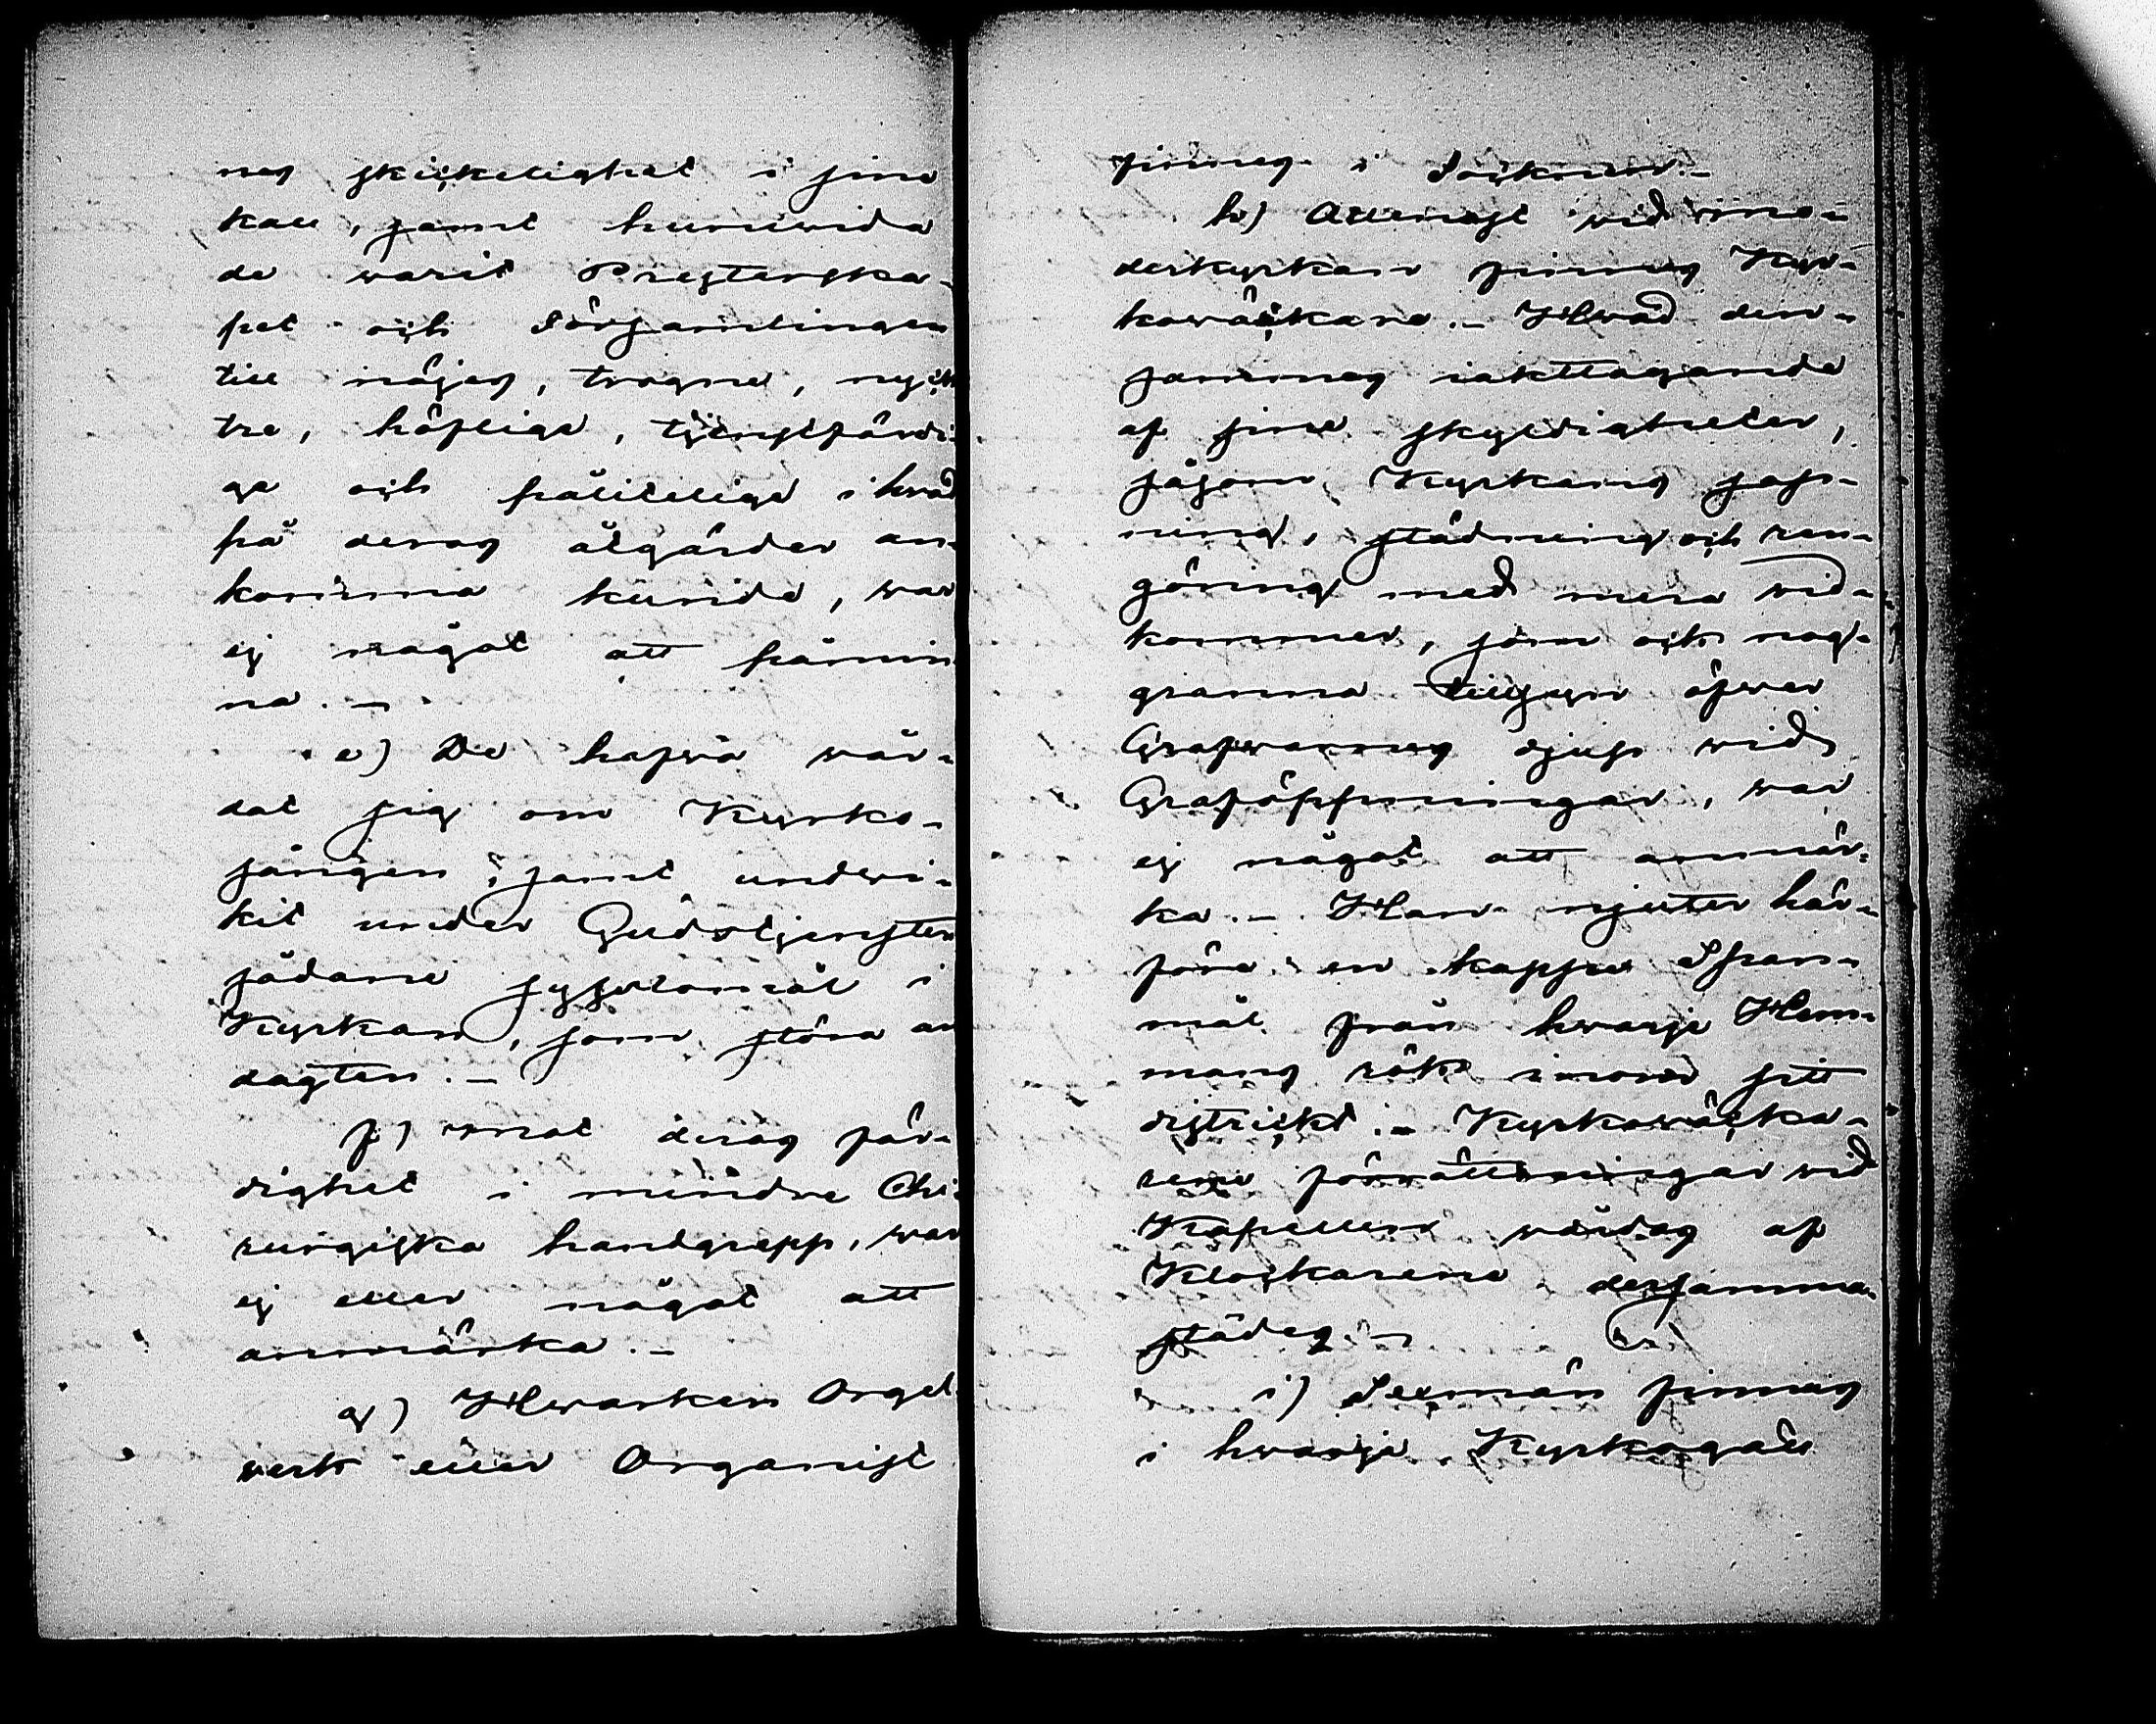 nes skickelighet i sine
kall, samt huruvida
de warit Presterska-
pet och Församlingen
till nöjes, trogne, nyck-
tre, höflige, tjenstfärdi-
ge och pålitelige i hwad
på deras åtgärder an-
komma kunde, war
ej något att påmin
na. –
e) De hafwa wår-
dat sig om Kyrko-
sången, samt undwi-
kit under Gudstjensten
sådane sysslomål i
Kyrkan, som störa an
dagten. –
f) mot deras fär-
dighet i mindre Chi-
rurgiska handgrepp, war
ej eller något att
anmärka. –
g) Hwarken Orgel-
werk eller Organist
finnes i Socknen. –
h) Allenast wid mo-
derkyrkan finnes Kyr-
kowäckare. – Hwad den-
sammes iakttagande
af sine skyldigheter,
såsom Kyrkans sop-
ning, städning och ren-
göring med mera wid-
kommer, som ock nog-
granna tillsyn öfwer
Grafwarnes djup wid
Graföppningar, war
ej något att anmär-
ka. – Han njuter här-
före en kappe Span-
mål från hwarje Hem-
mans rök inom sitt
district. – Kyrkowäcka-
rens förrättningar wid
Kapellen wårdas af
Klockarene dersamma-
städes. –
i) Sexmän finnas
i hwarje Kyrkogäll